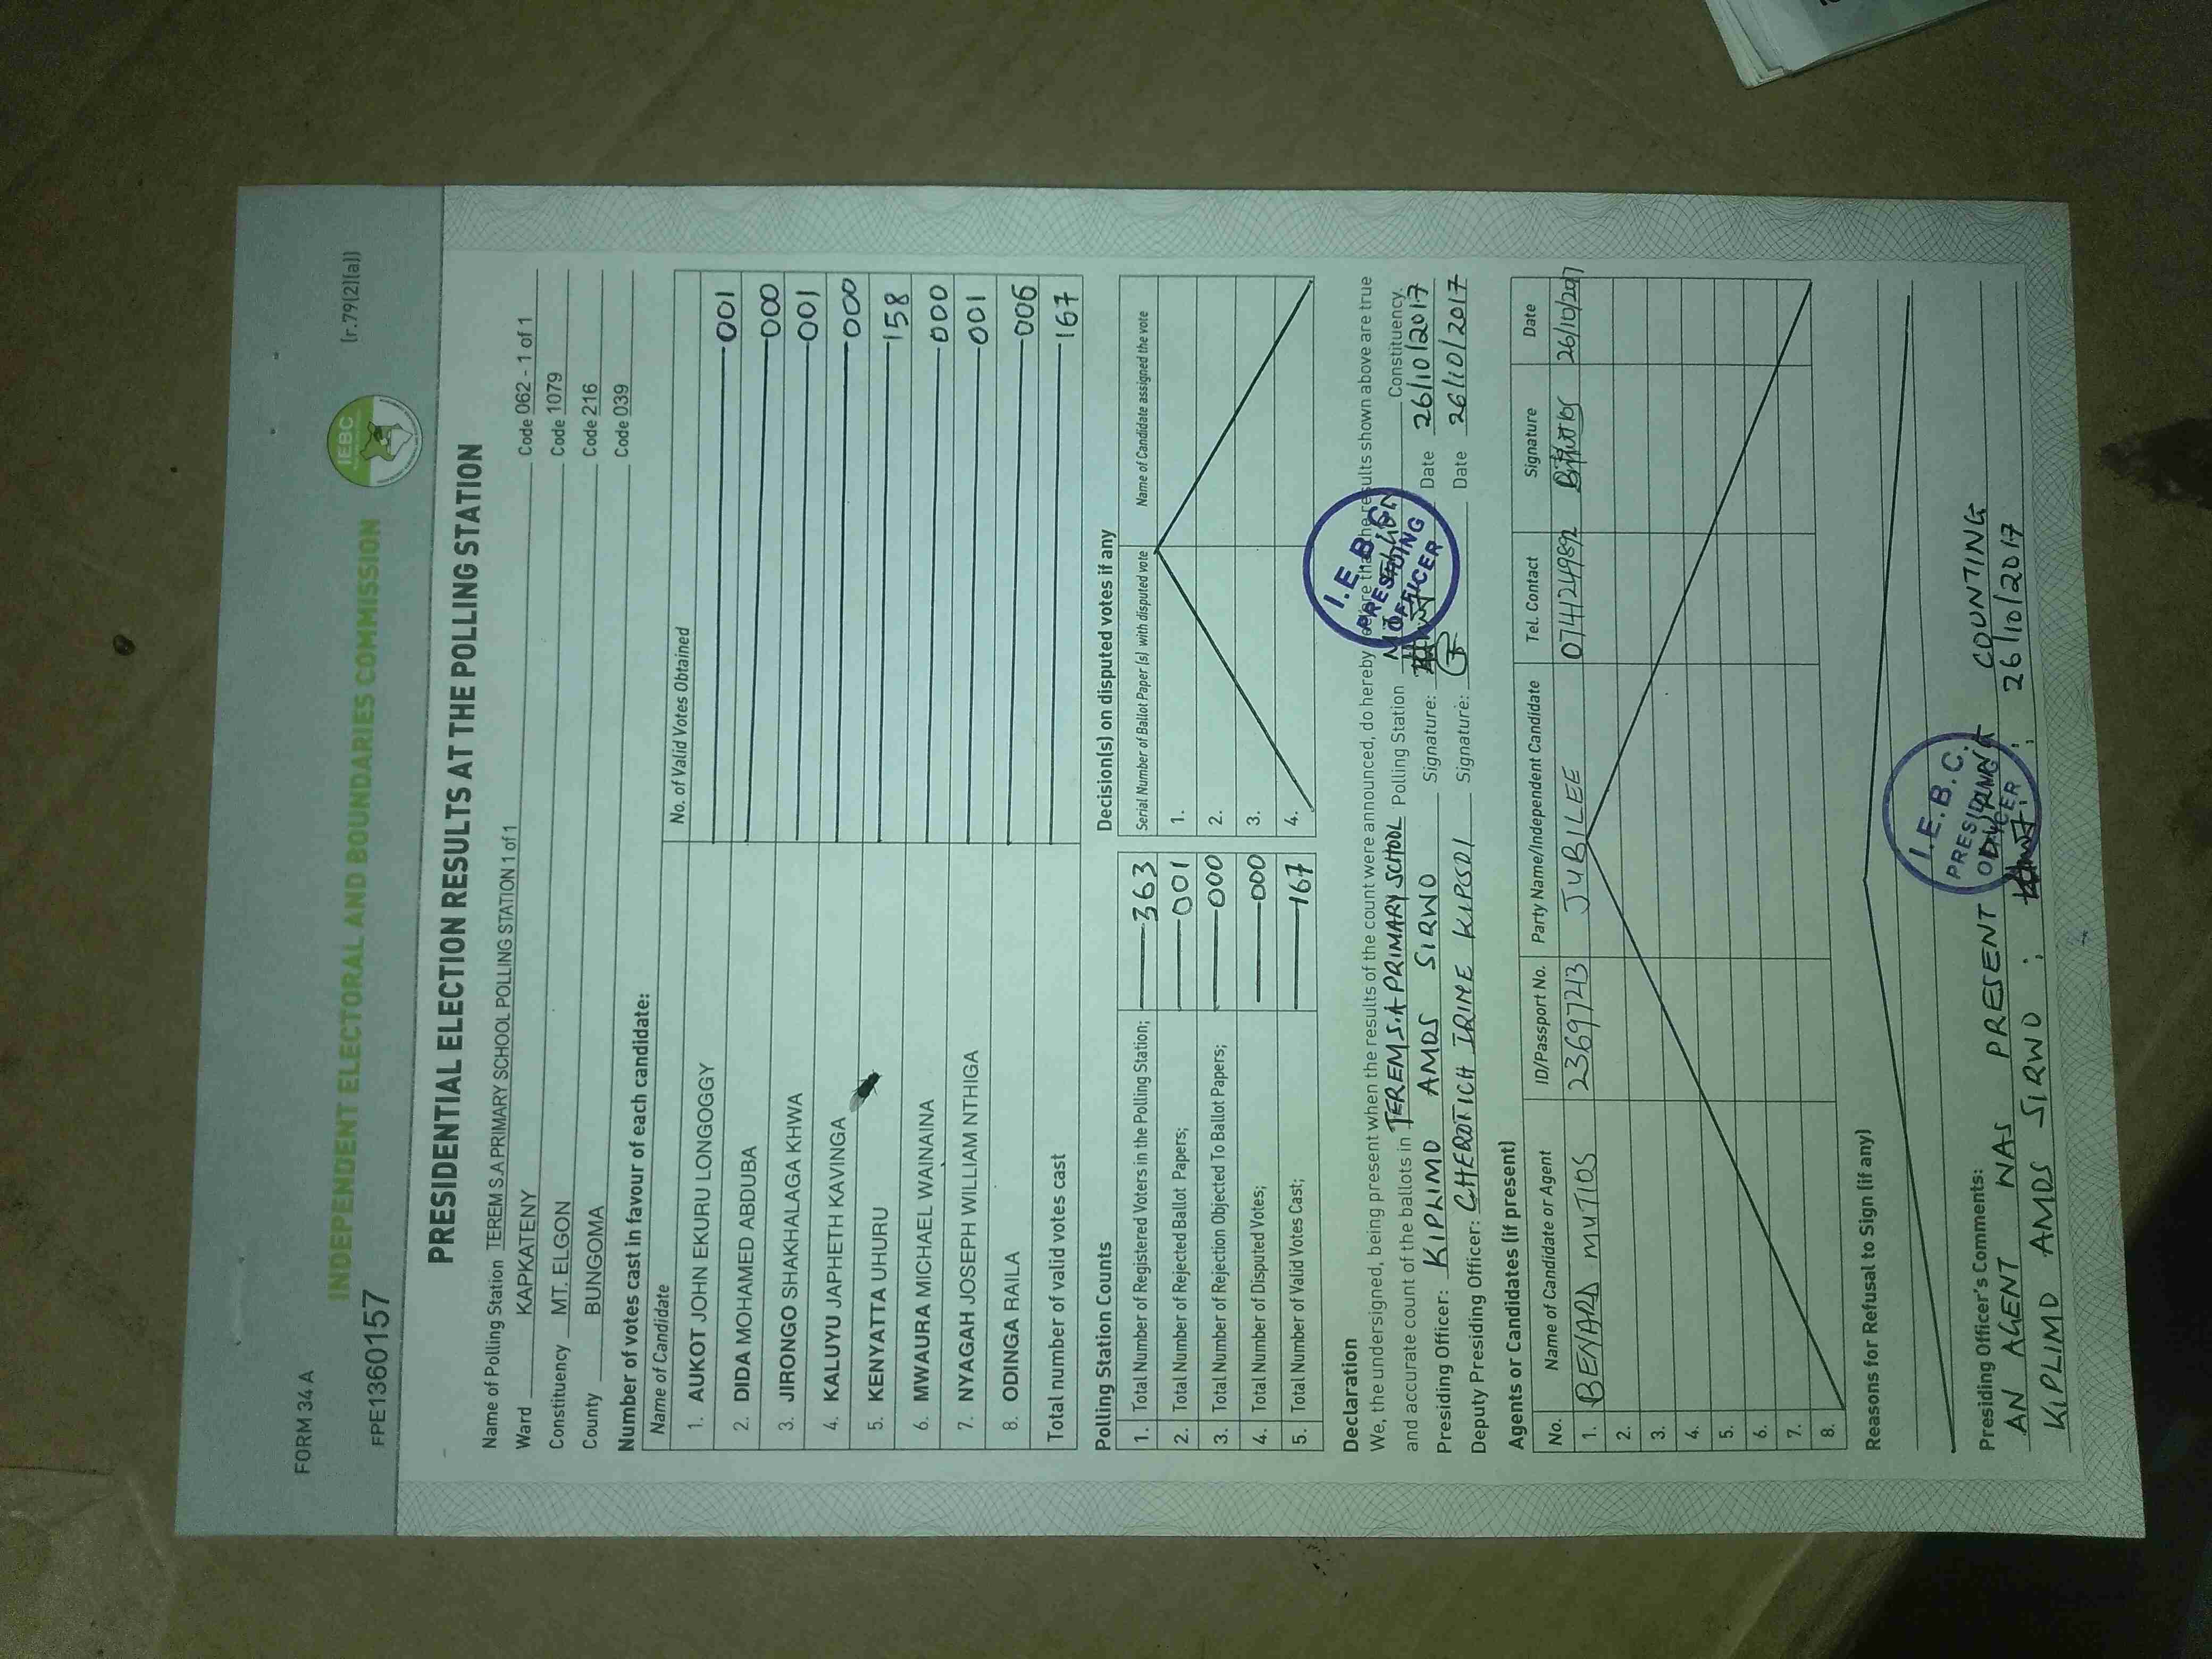 FORM 34 A
(r.79(2)(a))
IEBC
INDEPENDENT ELECTORAL AND BOUNDARIES COMMISSION
FPE1360157
PRESIDENTIAL ELECTION RESULTS AT THE POLLING STATION
Name of Polling Station TEREM S.A PRIMARY SCHOOL POLLING STATION 1 of 1 Code 062 - 1 of 1
Ward KAPKATENY Code 1079
Constituency MT. ELGON Code 216
County BUNGOMA Code 039
Number of votes cast in favour of each candidate:
Name of Candidate No. of Valid Votes Obtained
1. AUKOT JOHN EKURU LONGOGGY 001
2. DIDA MOHAMED ABDUBA 000
3. JIRONGO SHAKHALAGA KHWA 001
4. KALUYU JAPHETH KAVINGA 000
5. KENYATTA UHURU 158
6. MWAURA MICHAEL WAINAINA 000
7. NYAGAH JOSEPH WILLIAM NTHIGA 001
8. ODINGA RAILA 006
Total number of valid votes cast 167
Polling Station Counts
1. Total Number of Registered Voters in the Polling Station; 363
2. Total Number of Rejected Ballot Papers; 001
3. Total Number of Rejection Objected To Ballot Papers; 000
4. Total Number of Disputed Votes; 000
5. Total Number of Valid Votes Cast; 167
Decision(s) on disputed votes if any
Serial Number of Ballot Paper (s) with disputed vote Name of Candidate assigned the vote
1.
2.
3.
4.
Declaration
We, the undersigned, being present when the results of the count were announced, do hereby declare that the results shown above are true
and accurate count of the ballots in TEREM S.A PRIMARY SCHOOL Polling Station Constituency.
Presiding Officer: KIPLIMO AMOS SIRWO Signature: Date 26/10/2017
Deputy Presiding Officer: CHEROTICH IRINE KIPCSOI Signature: Date 26/10/2017
I.E.B.C. PRESIDING OFFICER
Agents or Candidates (if present)
No. Name of Candidate or Agent ID/Passport No. Party Name/Independent Candidate Tel. Contact Signature Date
1. BENARD MUTIOS 23697213 JUBILEE 0714249892 26/10/2017
2.
3.
4.
5.
6.
7.
8.
Reasons for Refusal to Sign (if any)
Presiding Officer's Comments:
AN AGENT WAS PRESENT PRESENT DURING COUNTING
KIPLIMO AMOS SIRWO : : 26/10/2017
I.E.B.C. PRESIDING OFFICER